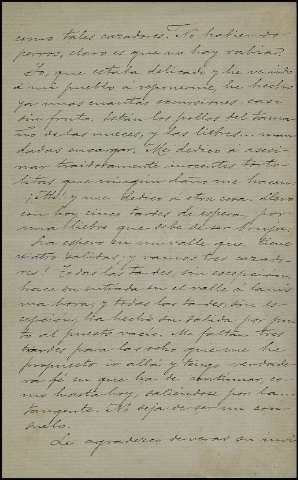 como tales cazadores. No habiendo
perros, claro es que no hay rabia?
Yo, que estaba delicado y he venido
á mi pueblo a reponerme, he hecho
ya unas cuantas excursiones, casi
sin fruto. Están los pollos del tama-
ño de las nueces, y las liebres... man-
dadas encargar. Me dedico a asesi-
nar traidoramente inocentes torto-
litas que ningún daño me hacen.
¡Ah! y me dedico a otra cosa. Llevo
con hoy cinco tardes de espera, por
una liebre que debe de ser bruja.
La espero en un valle que tiene
cuatro salidas, y vamos tres cazado-
res! Todas las tardes, sin excepcion,
hace su entrada en el valle á la mis-
ma hora; y todas las tardes, sin ex-
cepcion, ha hecho su salida por jun-
to al puesto vacío. Me faltan tres
tardes para las ocho que me he
propuesto ir allá y tengo verdade-
ra fé en que ha de continuar, co-
mo hasta hoy, saliéndose por la
tangente. No deja de ser un con-
suelo.
Le agradezco de veras su invi